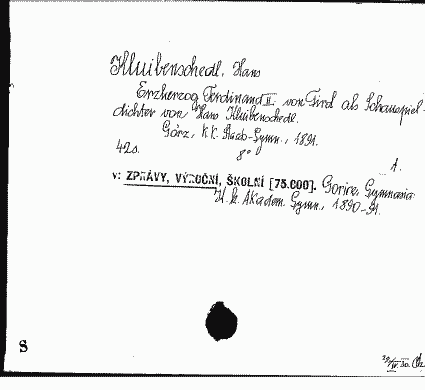 Kluibenschedl, Hans
Erzherzog Ferdinand II. von Tirol als Schauspiel-
dichter von Hans Kluibenschedl.
Görz, K.K. Staats-Gymn., 1891.
42 s. 8°
1.
v: ZPRÁVY, VÝROČNÍ, ŠKOLNÍ [75.000]. Gorice, Gymnasia
K. k. Akadem. Gymn., 1890-91.
S